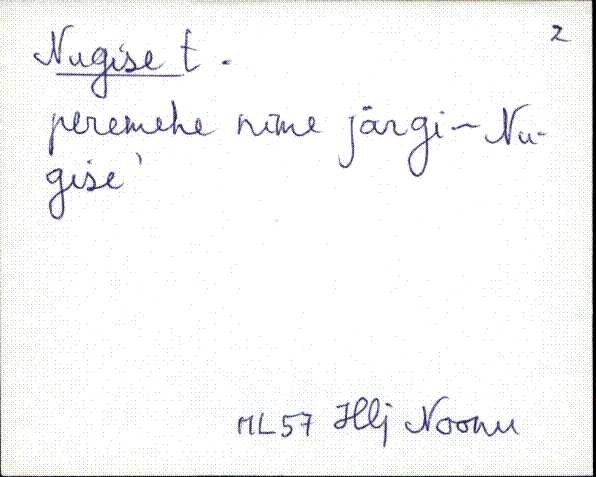 2
Nugise t.
peremehe nime järgi – Nu-
gise'
ML57 Hlj Noonu